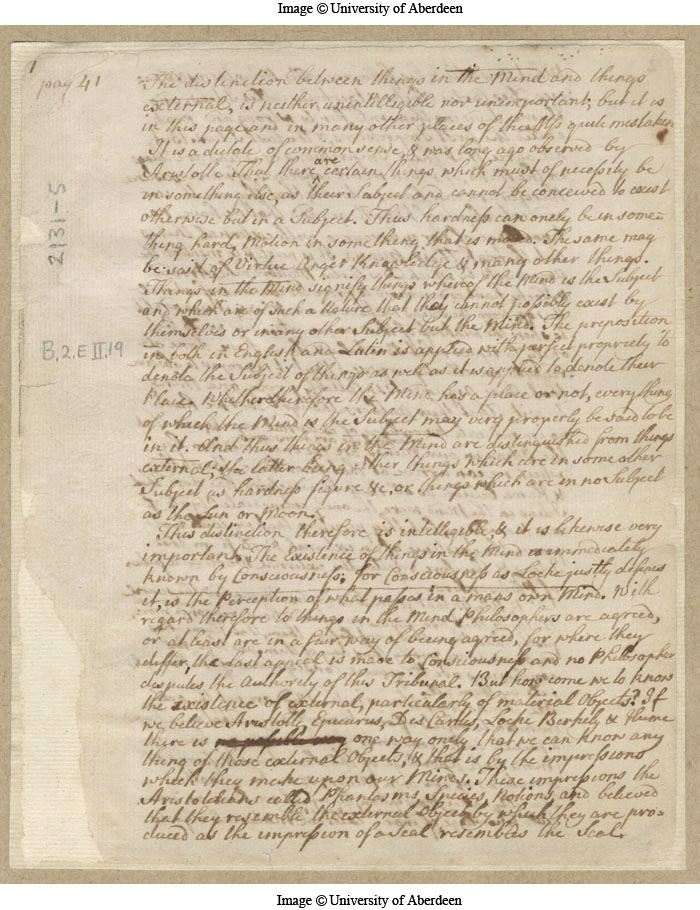 Image © University of Aberdeen
1
pag 41
The distinction between things in the Mind and things
external, is neither unintelligible nor unimportant, but it is
in this page and in many other places of the Mss quite mistaken
It is a dictate of common sense & was long ago observed by
Aristotle That there are certain things which must of necessity be
in something else, as their Subject and cannot be conceived to exist
otherwise but in a Subject. Thus hardness can onely be in some=
thing hard, Motion in something that is moved. The same may
be said of Virtue Anger Knowledge & many other things.
Things in the Mind signify things whereof the Mind is the Subject
and which are of such a Nature that they cannot possibly exist by
themselves or in any other Subject but the Mind. The preposition
in both in English and Latin is applied with perfect propriety to
denote the Subject of things as well as it is applied to denote their
Place. Whether therefore the Mind has a place or not, every thing
of which the Mind is the Subject may very properly be said to be
in it. And thus things in the Mind are distinguished from things
external; the latter being either things which are in some other
Subject as hardness figure &c, or things which are in no Subject
as the Sun or Moon.
This distinction therefore is intelligible, & it is likewise very
important. The Existence of things in the Mind is immediately
known by Consciousness; for Consciousness as Locke justly defines
it, is the Perception of what passes in a mans own Mind. With
regard therefore to things in the Mind Philosophers are agreed,
or at least are in a fair way of being agreed, for where they
differ, the last appeal is made to Consciousness and no Philosopher
disputes the Authority of this Tribunal. But how come we to know
the existence of external, particularly of material Objects? If
we believe Aristotle, Epicurus, Des Cartes, Locke Berkely & Hume
there is one way onely, that we can know any
thing of those external Objects, & that is by the impressions
which they make upon our Minds. These impressions the
Aristotelians called Phantasms, Species, Notions, and believed
that they resemble the external Object by which they are pro=
duced as the impression of a Seal resembles the Seal.
2131-5
B.2.E II.19
Image © University of Aberdeen